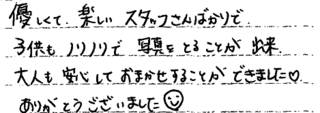 優しくて、楽しい スタッフさんばかりで、
子供も ノリノリで 写真をとることが 出来、
大人も 安心して おまかせすることが できました♡
ありがとうございました☺